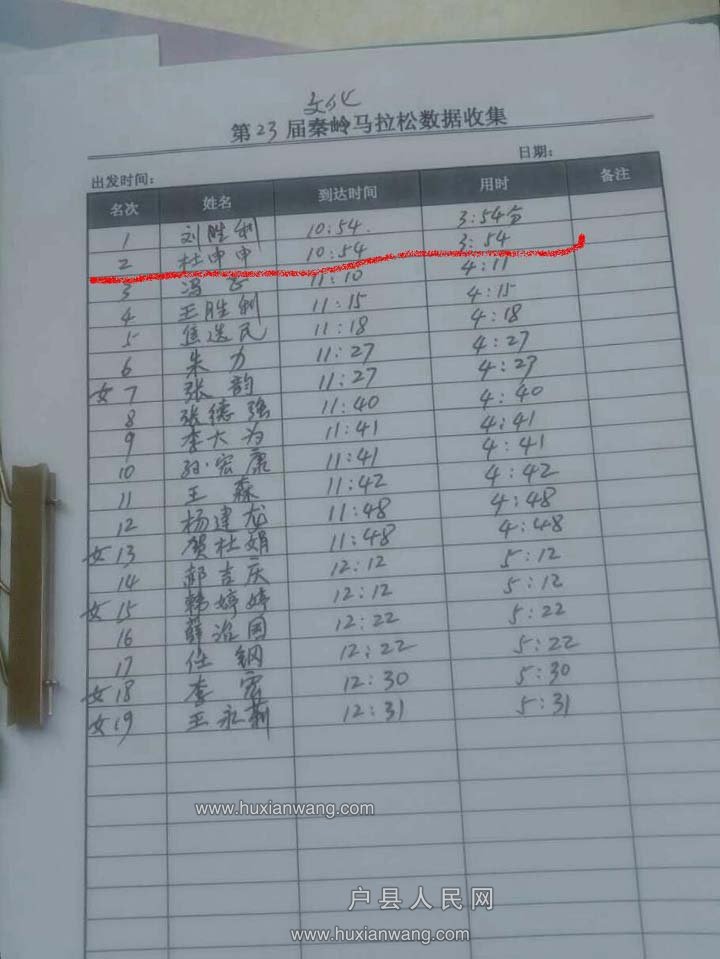 文化
第23届秦岭马拉松数据收集
出发时间: 日期:
名次 姓名 到达时间 用时 备注
1 刘胜利 10:54. 3:54分
2 杜申申 10:54 3:54
3 冯 11:10 4:11
4 王胜利 11:15 4:15
5 焦选民 11:18 4:18
6 朱力 11:27 4:27
女7 张韵 11:27 4:27
8 张德强 11:40 4:40
9 李大为 11:41 4:41
10 孙宏康 11:41 4:41
11 王森 11:42 4:42
12 杨建龙 11:48 4:48
女13 贺杜娟 11:48 4:48
14 郝吉庆 12:12 5:12
女15 韩婷婷 12:12 5:12
16 薛治国 12:22 5:22
17 任钢 12:22 5:22
女18 李宏 12:30 5:30
女19 王永莉 12:31 5:31
www.huxianwang.com
户县人民网
www.huxianwang.com